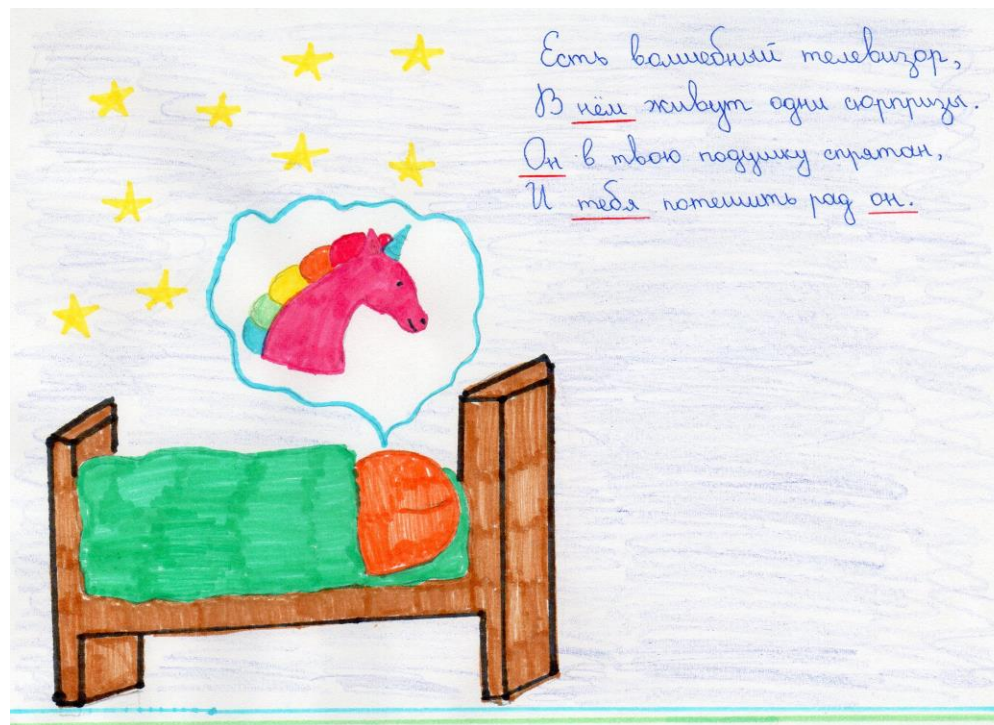 Есть волшебный телевизор,
В нём живут одни сюрпризы.
Он в твою подушку спрятан,
И тебя потешить рад он.